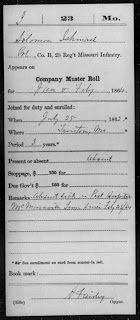 S 23 Mo.
Solomon Schmad
Pvt., Co. B, 23 Reg't Missouri Infantry.
Appears on
Company Muster Roll
for Jan & Feby, 1864.
Joined for duty and enrolled:
When July 25, 186
Where Mo
Period 3 years.*
Present or absent Absent
Stoppage, $ 100 for
Due Gov't $ 100 for
Remarks: Absent sick in Post Hospital
McMinnville Tenn since July
*See enrollment on card from muster-in roll.
Book mark:
(858c) Copyist.